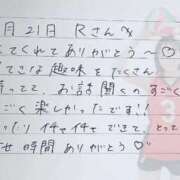 月21日 Rさん
てくれてありがとう〜♡
てきな趣味をたくさん
持ってて、お話聞くのすごく
ごく楽しかったです!!
った(!) イチャイチャできて、とって
せ時間ありがとう♡